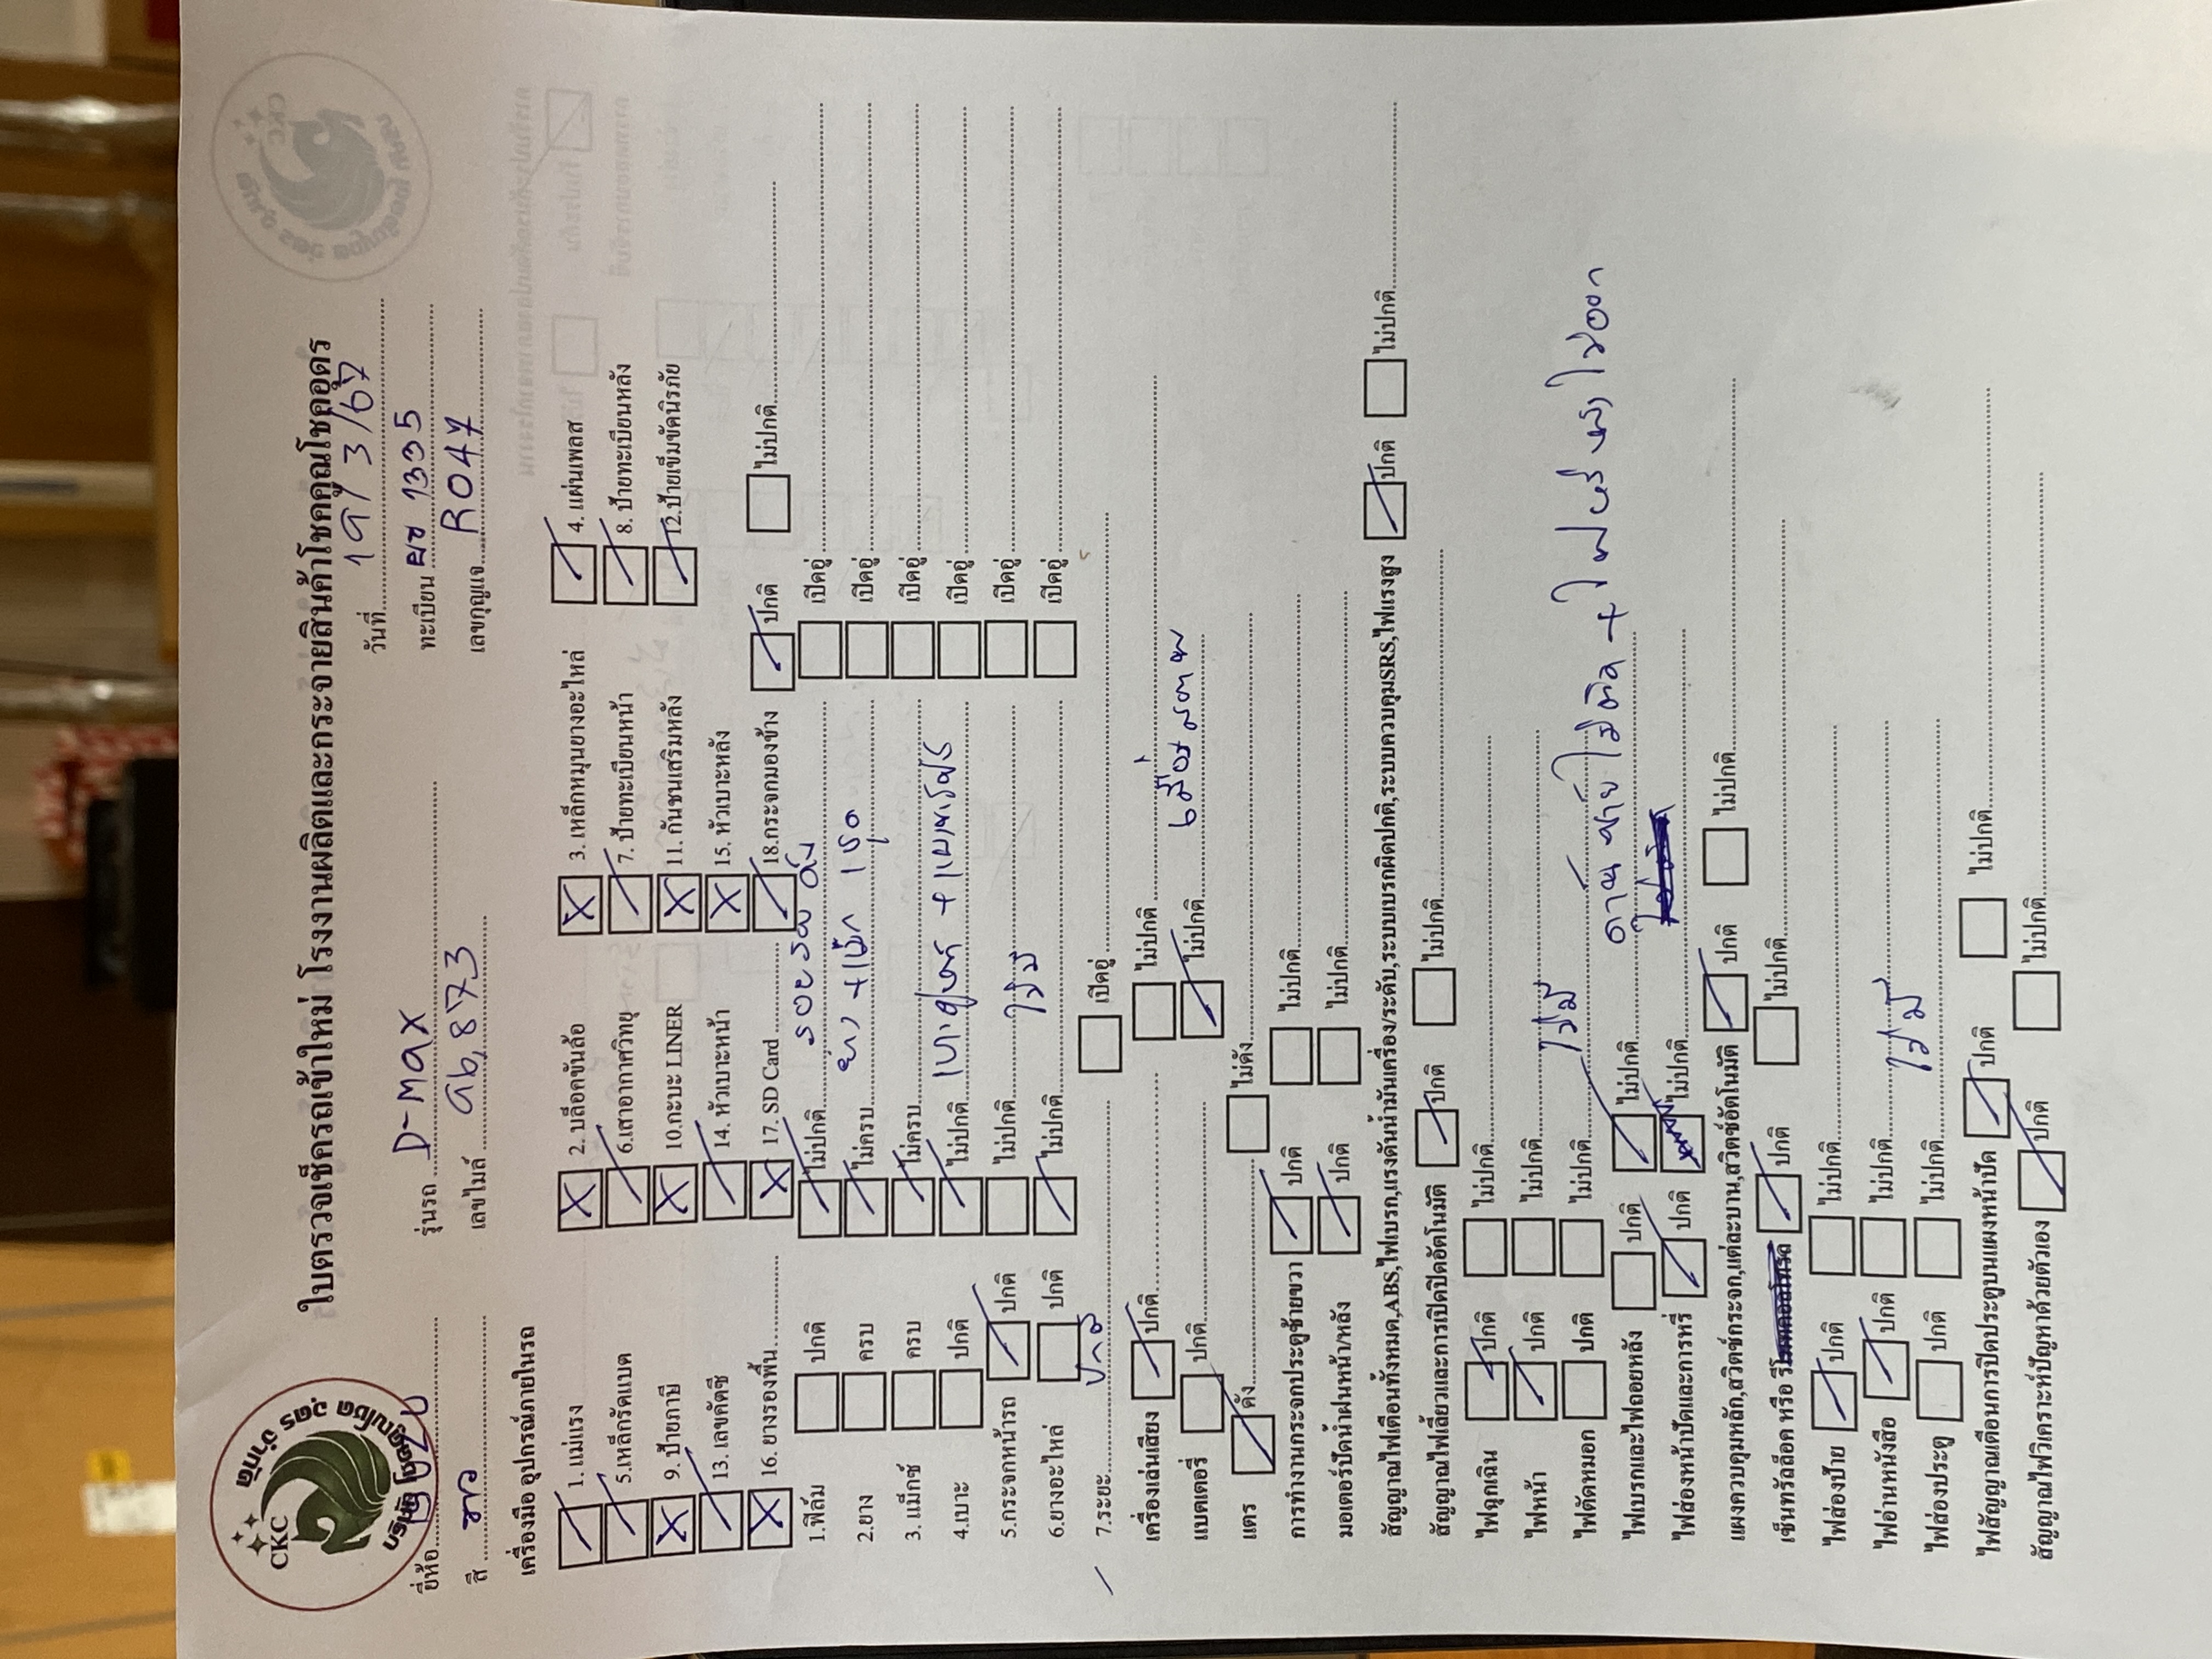 CKC
บริษัท โชคคูณโชค อุดร จำกัด
ใบตรวจเช็ครถเข้าใหม่ โรงงานผลิตและกระจายสินค้าโชคคูณโชคอุดร
วันที่ 19/3/67
ยี่ห้อ รุ่นรถ D-max ทะเบียน ผข 1335
สี ขาว เลขไมล์ 96,873 เลขกุญแจ R047
เครื่องมือ อุปกรณ์ภายในรถ
1. แม่แรง 2. บล็อคขันล้อ 3. เหล็กหมุนยางอะไหล่ 4. แผ่นเพลส
5.เหล็กรัดแบต 6.เสาอากาศวิทยุ 7. ป้ายทะเบียนหน้า 8. ป้ายทะเบียนหลัง
9. ป้ายภาษี 10.กะบะ LINER 11. กันชนเสริมหลัง 12.ป้ายเข็มขัดนิรภัย
13. เลขคัตซี 14. หัวเบาะหน้า 15. หัวเบาะหลัง
16. ยางรองพื้น 17. SD Card 18.กระจกมองข้าง ปกติ ไม่ปกติ
1.ฟิล์ม ปกติ ไม่ปกติ รอยรอบคัน เปิดอู่
2.ยาง ครบ ไม่ครบ เปิดอู่
3. แม็กซ์ ครบ ไม่ครบ เปิดอู่
4.เบาะ ปกติ ไม่ปกติ เปิดอู่
5.กระจกหน้ารถ ปกติ ไม่ปกติ เปิดอู่
6.ยางอะไหล่ ปกติ ไม่ปกติ ไม่มี เปิดอู่
7.ระยะ ปกติ เปิดอู่
เครื่องเล่นเสียง ปกติ ไม่ปกติ
แบตเตอรี่ ปกติ ไม่ปกติ เสื่อมสภาพ
แตร ดัง ไม่ดัง
การทำงานกระจกประตูซ้ายขวา ปกติ ไม่ปกติ
มอเตอร์ปัดน้ำฝนหน้า/หลัง ปกติ ไม่ปกติ
สัญญาณไฟเตือนทั้งหมด,ABS,ไฟเบรก,แรงดันน้ำมันเครื่อง/ระดับ,ระบบเบรกผิดปกติ,ระบบควบคุมSRS,ไฟแรงสูง ปกติ ไม่ปกติ
สัญญาณไฟเลี้ยวและการเปิดปิดอัตโนมัติ ปกติ ไม่ปกติ
ไฟฉุกเฉิน ปกติ ไม่ปกติ
ไฟหน้า ปกติ ไม่ปกติ
ไฟตัดหมอก ปกติ ไม่ปกติ ไม่มี
ไฟเบรกและไฟถอยหลัง ปกติ ไม่ปกติ ด้านซ้ายไม่ติด +
ไฟส่องหน้าปัดและการหรี่ ปกติ ไม่ปกติ
แผงควบคุมหลัก,สวิตช์กระจก,แต่ละบาน,สวิตช์อัตโนมัติ ปกติ ไม่ปกติ
เซ็นทรัลล็อค หรือ รีโมทคอลโทรล ปกติ ไม่ปกติ
ไฟส่องป้าย ปกติ ไม่ปกติ
ไฟอ่านหนังสือ ปกติ ไม่ปกติ
ไฟส่องประตู ปกติ ไม่ปกติ ไม่มี
ไฟสัญญาณเตือนการปิดประตูบนแผงหน้าปัด ปกติ ไม่ปกติ
สัญญาณไฟวิเคราะห์ปัญหาด้วยตัวเอง ปกติ ไม่ปกติ